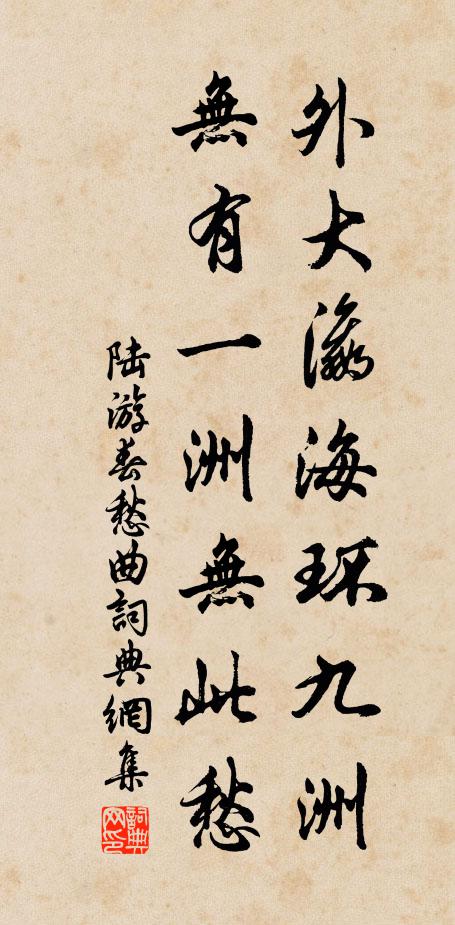 外大瀛海环九洲
無有一洲無此愁
陆游春愁曲詞典網集
詞典网印